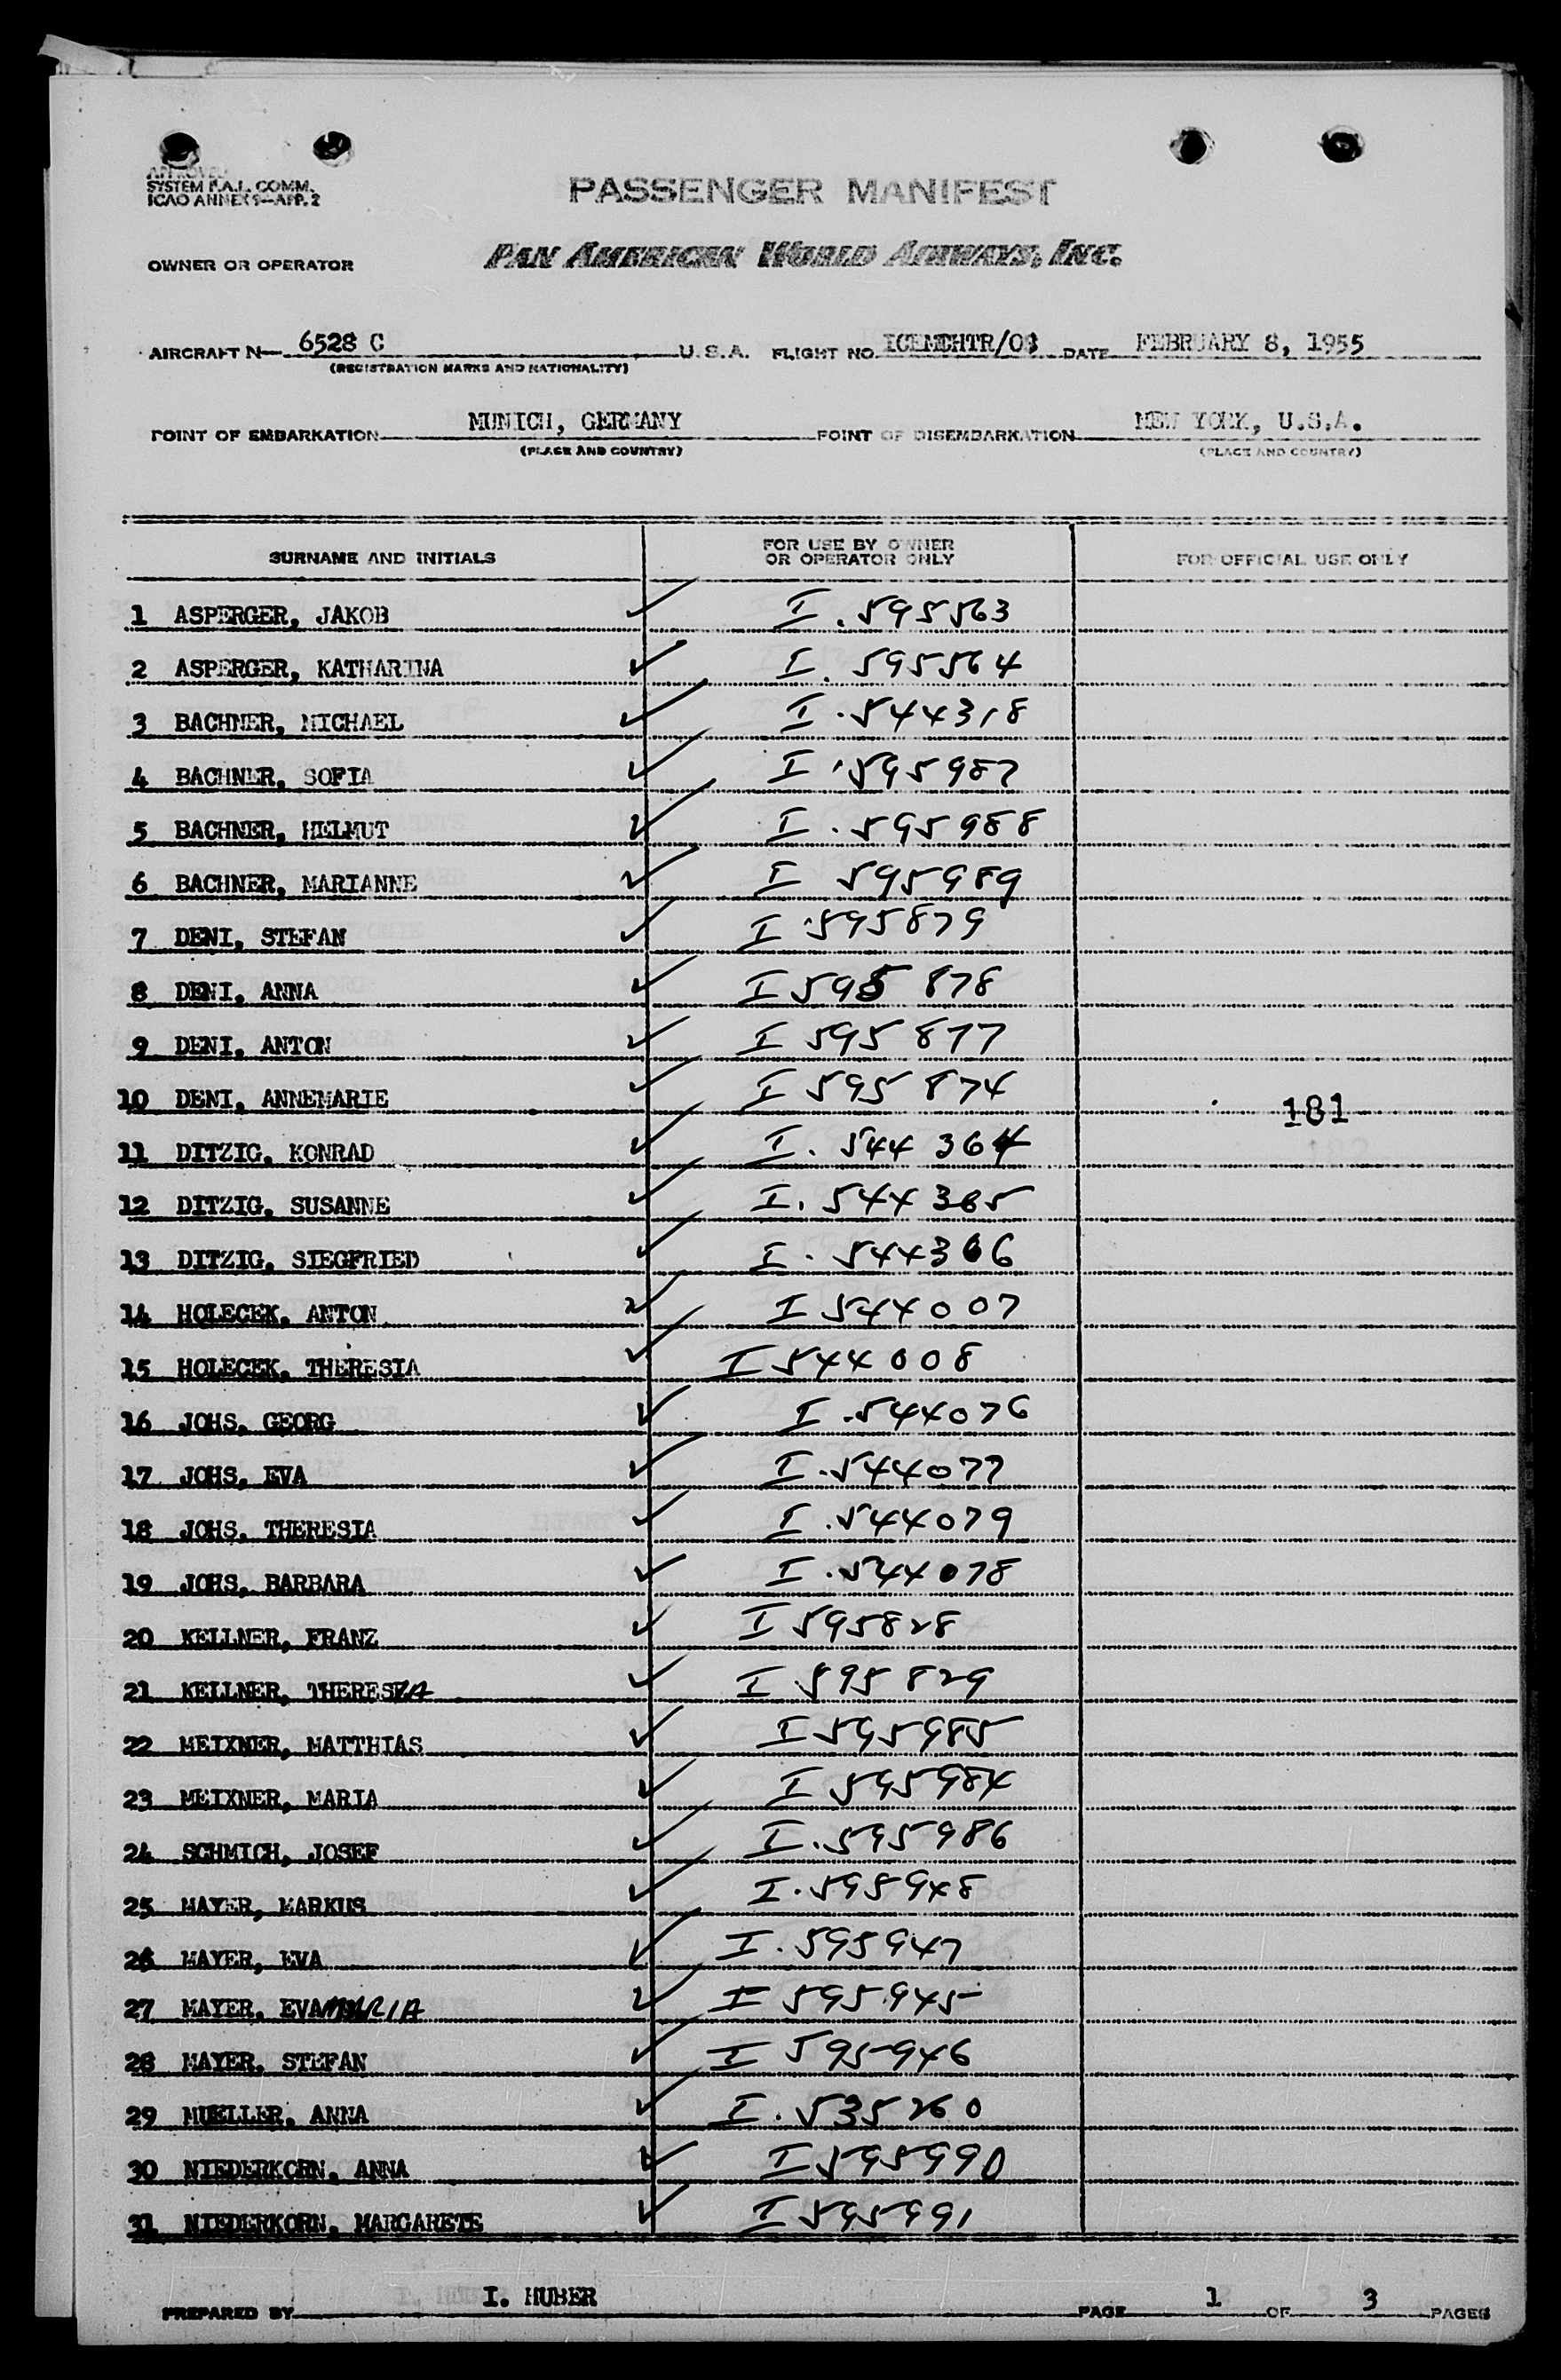 APPROVED
SYSTEM F.A.L. COMM.
ICAO ANNEX 9—APP. 2
PASSENGER MANIFEST
OWNER OR OPERATOR PAN AMERICAN WORLD AIRWAYS, INC.
AIRCRAFT N— 6528 C U.S.A. FLIGHT NO. DATE FEBRUARY 8, 1955
(REGISTRATION MARKS AND NATIONALITY)
POINT OF EMBARKATION MUNICH, GERMANY POINT OF DISEMBARKATION NEW YORK, U.S.A.
(PLACE AND COUNTRY) (PLACE AND COUNTRY)
SURNAME AND INITIALS FOR USE BY OWNER OR OPERATOR ONLY FOR OFFICIAL USE ONLY
1 ASPERGER, JAKOB ✓ I. 595563
2 ASPERGER, KATHARINA ✓ I. 595564
3 BACHNER, MICHAEL ✓ I. 544318
4 BACHNER, SOFIA ✓ I. 595987
5 BACHNER, HELMUT ✓ I. 595988
6 BACHNER, MARIANNE ✓ I 595989
7 DENI, STEFAN ✓ I. 595879
8 DENI, ANNA ✓ I 595 878
9 DENI, ANTON ✓ I 595 877
10 DENI, ANNEMARIE ✓ I 595 874 181
11 DITZIG, KONRAD ✓ I. 544 364
12 DITZIG, SUSANNE ✓ I. 544 365
13 DITZIG, SIEGFRIED ✓ I. 544366
14 HOLECEK, ANTON ✓ I 544007
15 HOLECEK, THERESIA ✓ I 544008
16 JOHS, GEORG ✓ I. 544076
17 JOHS, EVA ✓ I. 544077
18 JOHS, THERESIA ✓ I. 544079
19 JOHS, BARBARA ✓ I. 544078
20 KELLNER, FRANZ ✓ I 595828
21 KELLNER, THERESIA ✓ I 595 829
22 MEIXNER, MATTHIAS ✓ I 595985
23 MEIXNER, MARIA ✓ I 595984
24 SCHMICH, JOSEF ✓ I. 595986
25 MAYER, MARKUS ✓ I. 595948
26 MAYER, EVA ✓ I. 595947
27 MAYER, EVAMARIA ✓ I 595945
28 MAYER, STEFAN ✓ I 595946
29 MUELLER, ANNA ✓ I. 535260
30 NIEDERKORN, ANNA ✓ I 595990
31 NIEDERKORN, MARGARETE ✓ I 595991
PREPARED BY I. HUBER PAGE 1 OF 3 PAGES